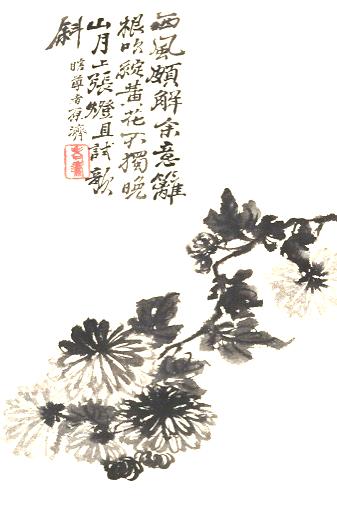 西風頗解余意籬
根吹綻黃花不獨晚
山月上張燈且試
斜
瞎尊者原濟